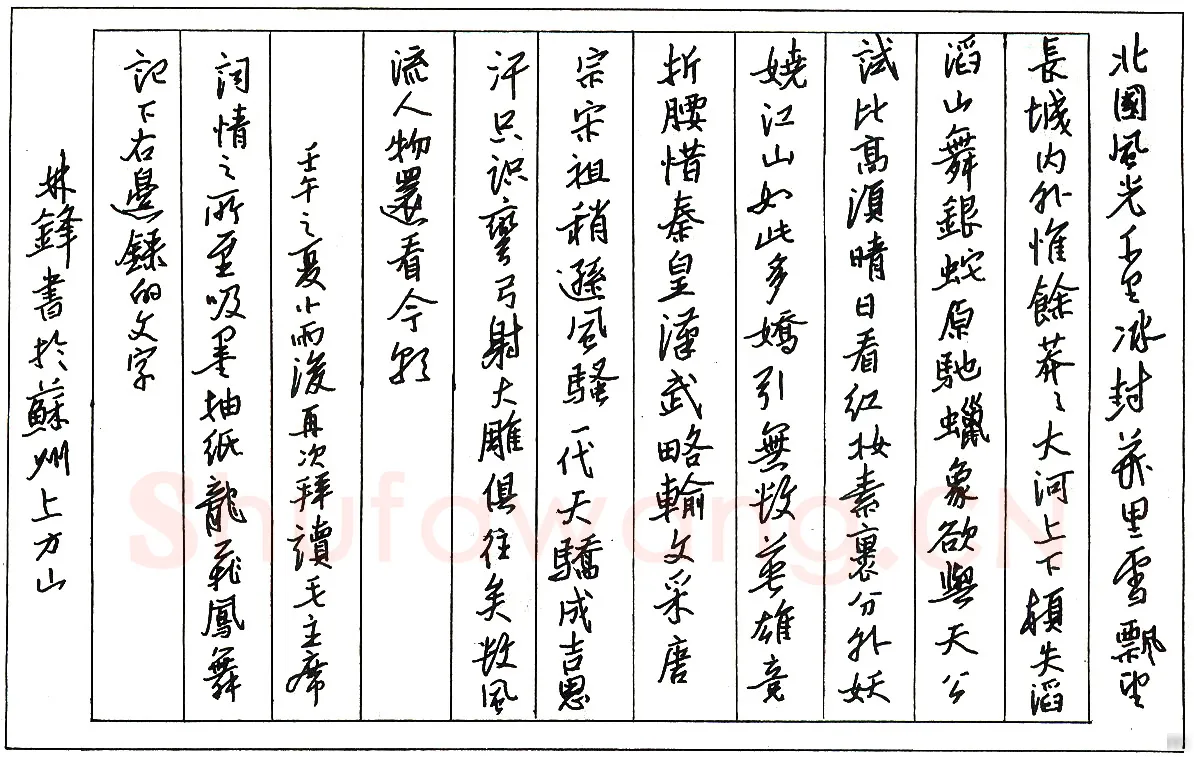 北國風光千里冰封萬里雪飄望
長城内外惟餘莽々大河上下頓失滔
滔山舞銀蛇原馳蠟象欲與天公
試比高須晴日看红妆素裹分外妖
嬈江山如此多嬌引無数英雄竞
折腰惜秦皇漢武略輸文采唐
宗宋祖稍遜風騷一代天驕成吉思
汗只识彎弓射大雕俱往矣数風
流人物還看今朝
壬午之夏小雨後再次拜讀毛主席
词情之所至吸墨抽纸龍飛鳳舞
記下右邊録的文字
林鋒書於蘇州上方山
Shufawang.CN